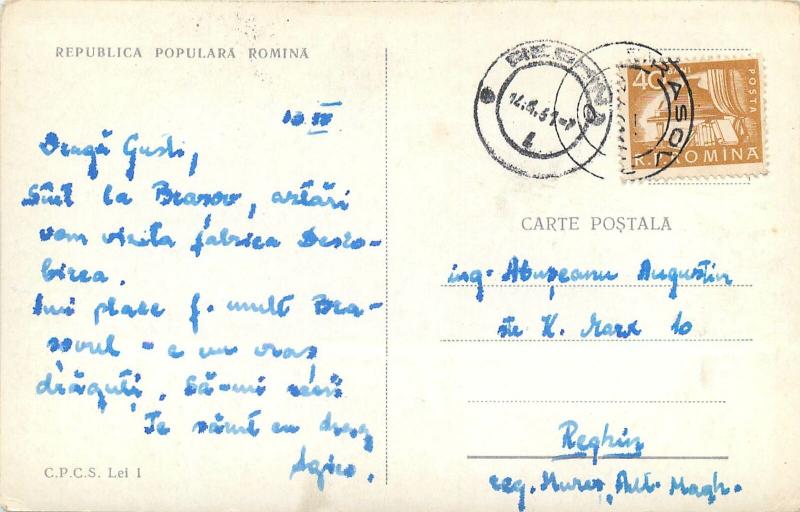 REPUBLICA POPULARĂ ROMÎNĂ
Dragă Gusti,
Sînt la Brașov, astări
vom vizita fabrica Desro-
birea.
Îmi place f. mult Bra-
șovul - e un oraș
drăguț. Să-mi
Te sărut cu drag
C.P.C.S. Lei 1
40
POSTA
R.P. ROMINA
CARTE POȘTALA
ing. Abușeanu Augustin
str K. Marx 10
Reghin
reg. Mureș Aut. Magh.